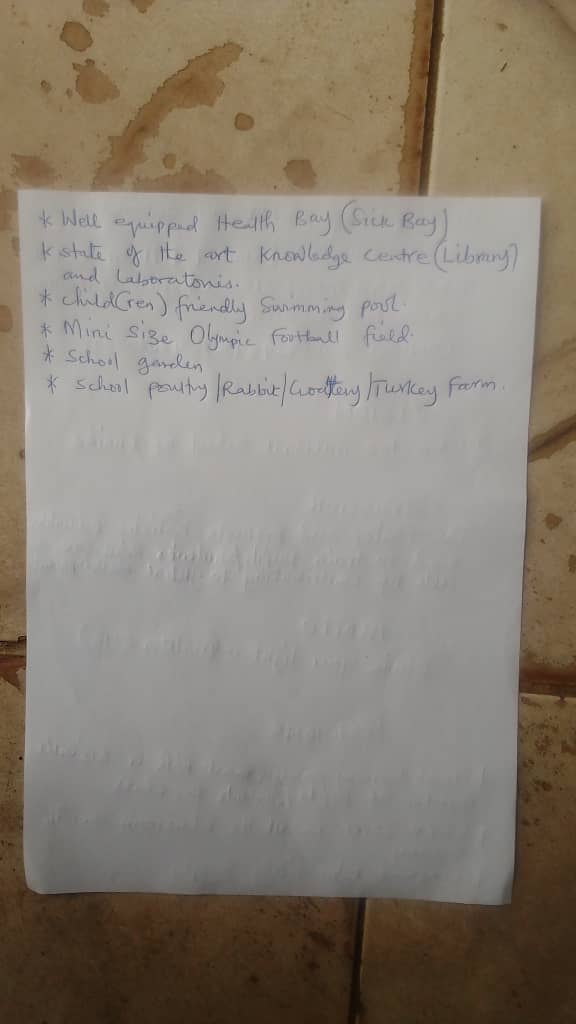 * Well equipped Health Bay (Sick Bay)
* state of the art Knowledge centre (Library)
and Laboratories.
* child(ren) friendly Swimming pool.
* Mini Size Olympic Football field.
* School garden
* School poultry/Rabbit/Goattery/Turkey Farm.